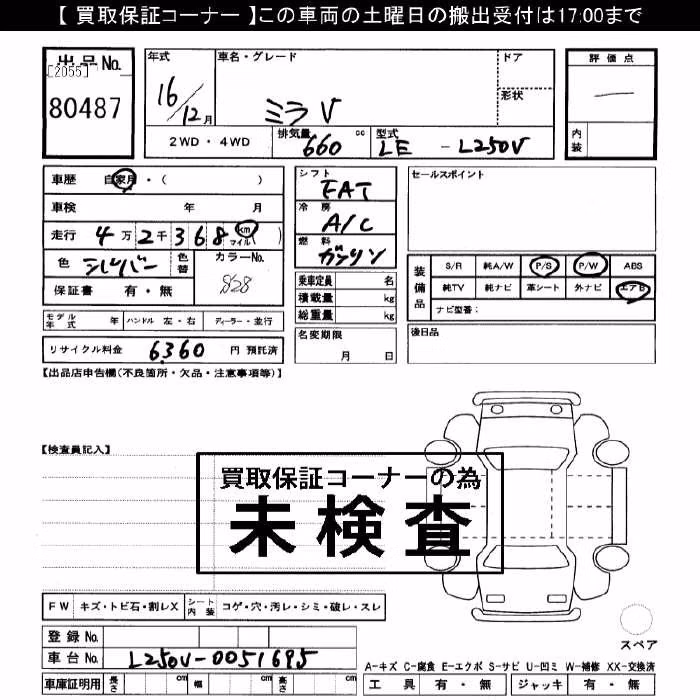 【 買取保証コーナー 】この車両の土曜日の搬出受付は17:00まで
出品No.
[2055]
80487
年式
16/12月
車名・グレード
ミラ V
ドア
形状
評価点
内装
2WD・4WD
排気量 660 cc
型式 LE - L250V
車歴 自家用・( )
車検 年 月
走行 4万2千368 km マイル ( )
色 シルバー 色替
カラーNo. S28
保証書 有・無
モデル年式 年 ハンドル 左・右 ディーラー・並行
リサイクル料金 6,360 円 預託済
シフト FAT
冷房 A/C
燃料 ガソリン
乗車定員 名
積載量 kg
総重量 kg
名変期限
月 日
セールスポイント
装備品
S/R 純A/W P/S P/W ABS
純TV 純ナビ 革シート 外ナビ エアB
ナビ型番:
後日品
【出品店申告欄(不良箇所・欠品・注意事項等)】
【検査員記入】
買取保証コーナーの為
未検査
FW キズ・トビ石・割レX シート内装 コゲ・穴・汚レ・シミ・破レ・スレ
登録No.
車台No. L250V-0051695
車庫証明用 長さ cm 幅 cm 高さ cm
スペア
A-キズ C-腐食 E-エクボ S-サビ U-凹ミ W-補修 XX-交換済
工具 有・無 ジャッキ 有・無